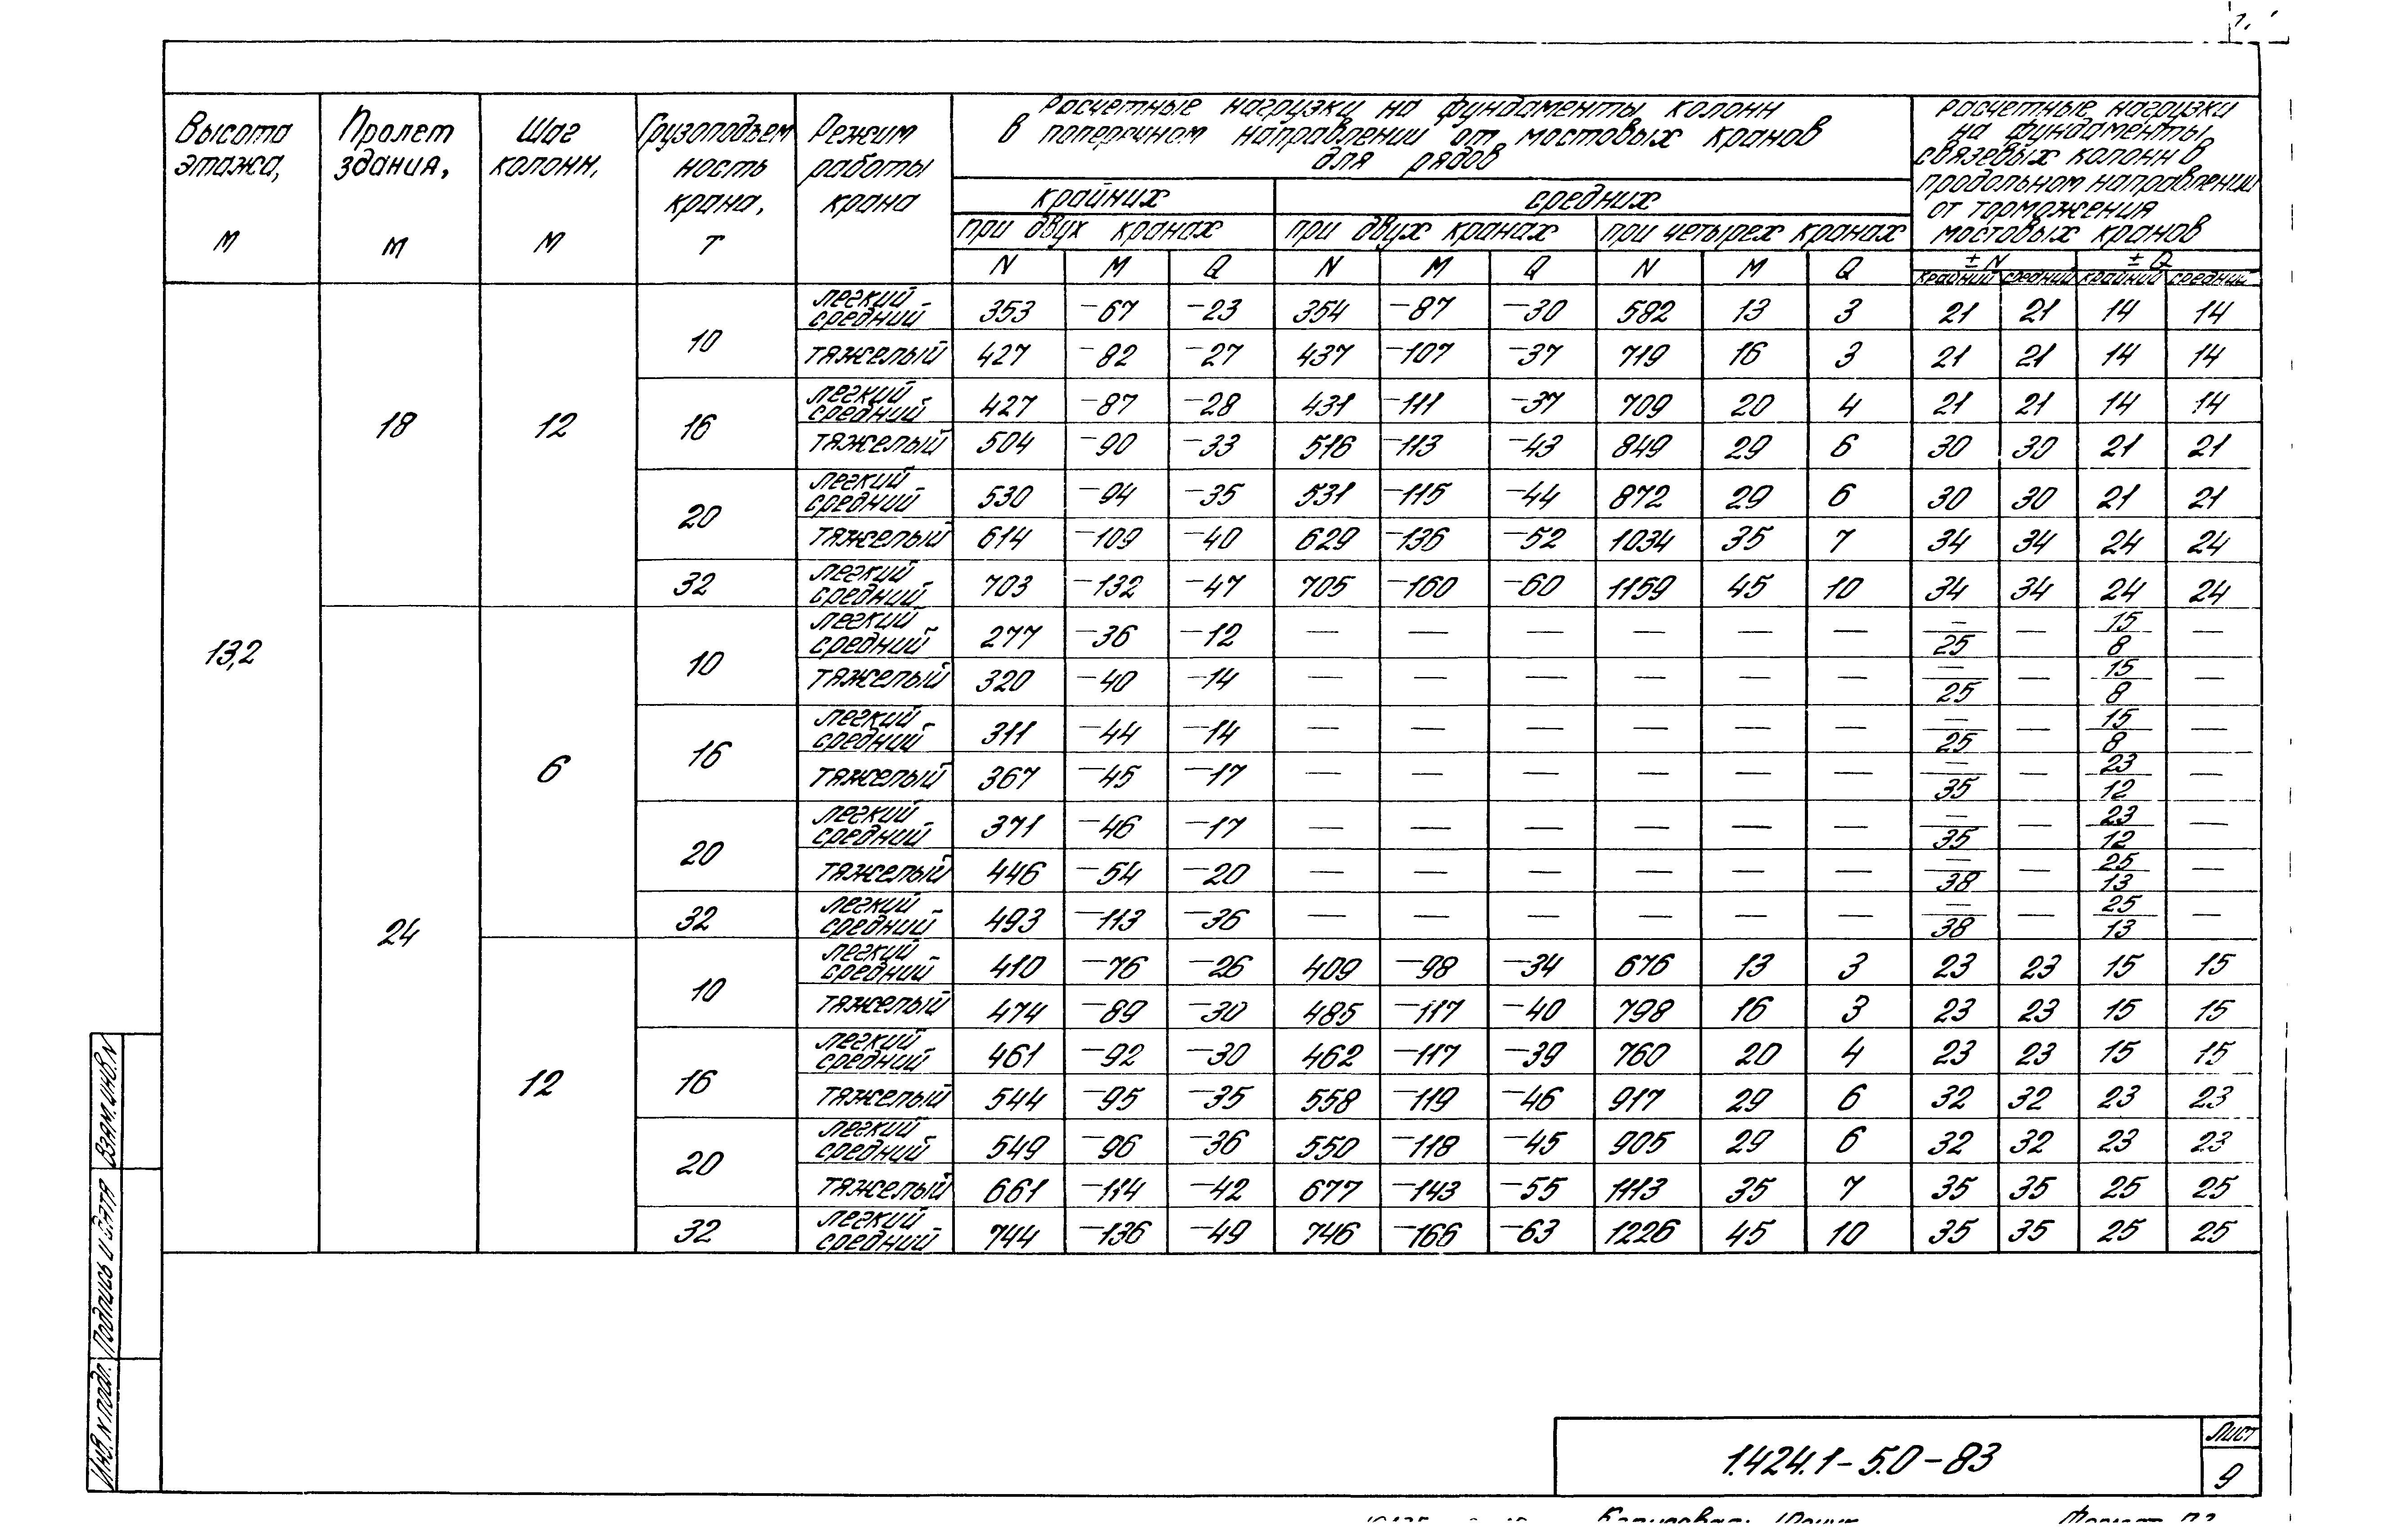 Высота этажа, м
Пролет здания, м
Шаг колонн, м
Грузоподъем ность крана, т
Режим работы крана
Расчетные нагрузки на фундаменты колонн
в поперечном направлении от мостовых кранов
для рядов
крайних
средних
при двух кранах
при двух кранах
при четырех кранах
Расчетные нагрузки
на фундаменты
связевых колонн в
продольном направлении
от торможения
мостовых кранов
N M Q N M Q N M Q ±N ±Q
крайний средний крайний средний
13,2
18 12
10 легкий средний 353 -67 -23 354 -87 -30 582 13 3 21 21 14 14
тяжелый 427 -82 -27 437 -107 -37 719 16 3 21 21 14 14
16 легкий средний 427 -87 -28 431 -111 -37 709 20 4 21 21 14 14
тяжелый 504 -90 -33 516 -113 -43 849 29 6 30 30 21 21
20 легкий средний 530 -94 -35 531 -115 -44 872 29 6 30 30 21 21
тяжелый 614 -109 -40 629 -136 -52 1034 35 7 34 34 24 24
32 легкий средний 703 -132 -47 705 -160 -60 1159 45 10 34 34 24 24
24 6
10 легкий средний 277 -36 -12 — — — — — — —/25 — 15/8 —
тяжелый 320 -40 -14 — — — — — — —/25 — 15/8 —
16 легкий средний 311 -44 -14 — — — — — — —/25 — 15/8 —
тяжелый 367 -45 -17 — — — — — — —/35 — 23/12 —
20 легкий средний 371 -46 -17 — — — — — — —/35 — 23/12 —
тяжелый 446 -54 -20 — — — — — — —/38 — 25/13 —
32 легкий средний 493 -113 -36 — — — — — — —/38 — 25/13 —
12
10 легкий средний 410 -76 -26 409 -98 -34 676 13 3 23 23 15 15
тяжелый 474 -89 -30 485 -117 -40 798 16 3 23 23 15 15
16 легкий средний 461 -92 -30 462 -117 -39 760 20 4 23 23 15 15
тяжелый 544 -95 -35 558 -119 -46 917 29 6 32 32 23 23
20 легкий средний 549 -96 -36 550 -118 -45 905 29 6 32 32 23 23
тяжелый 661 -114 -42 677 -143 -55 1113 35 7 35 35 25 25
32 легкий средний 744 -136 -49 746 -166 -63 1226 45 10 35 35 25 25
Инв. N подл.
Подпись и дата
Взам. инв. N
1.424.1-5.0-83
Лист
9